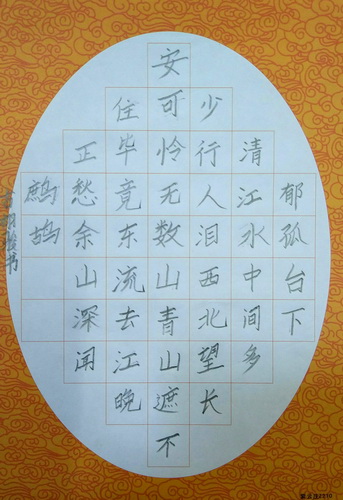 郁孤台下
清江水中间多
少行人泪西北望长
安可怜无数山青山遮不
住毕竟东流去江晚
正愁余山深闻
鹧鸪